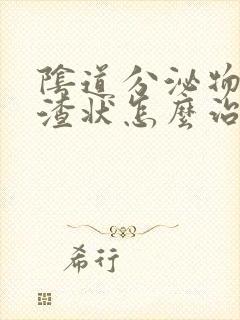 陰道分泌物
渣狀怎麼治
希行